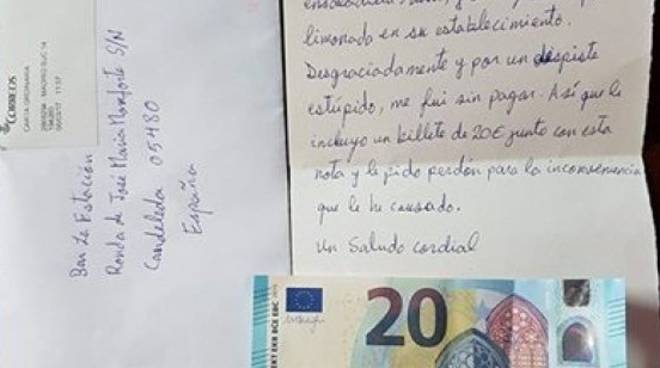 CORREOS
CARTA ORDINARIA
Bar La Estación
Ronda de José María Monforte S/N
Candeleda 05480
España
limonada en su establecimiento.
Desgraciadamente y por un despiste
estúpido, me fui sin pagar. Así que le
incluyo un billete de 20€ junto con esta
nota y le pido perdón para la inconveniencia
que le he causado.
Un Saludo cordial
20